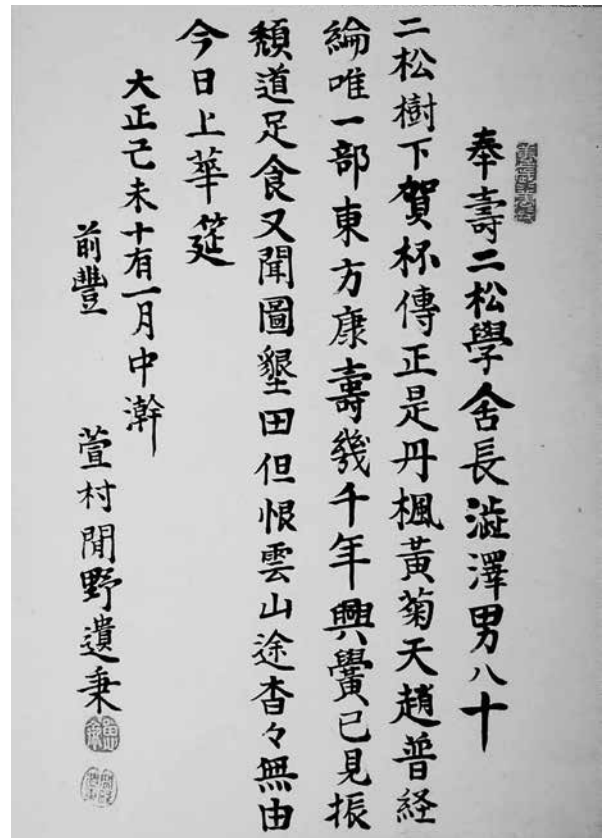 奉壽二松學舍長澁澤男八十
二松樹下賀杯傳正是丹楓黃菊天趙普経
綸唯一部東方康壽幾千年興黌已見振
頽道足食又聞圖墾田但恨雲山途杳々無由
今日上華筵
大正己未十有一月中澣
前豐 萱村閒野遺秉